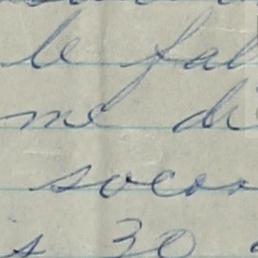 le fal
me di
socor
s 30